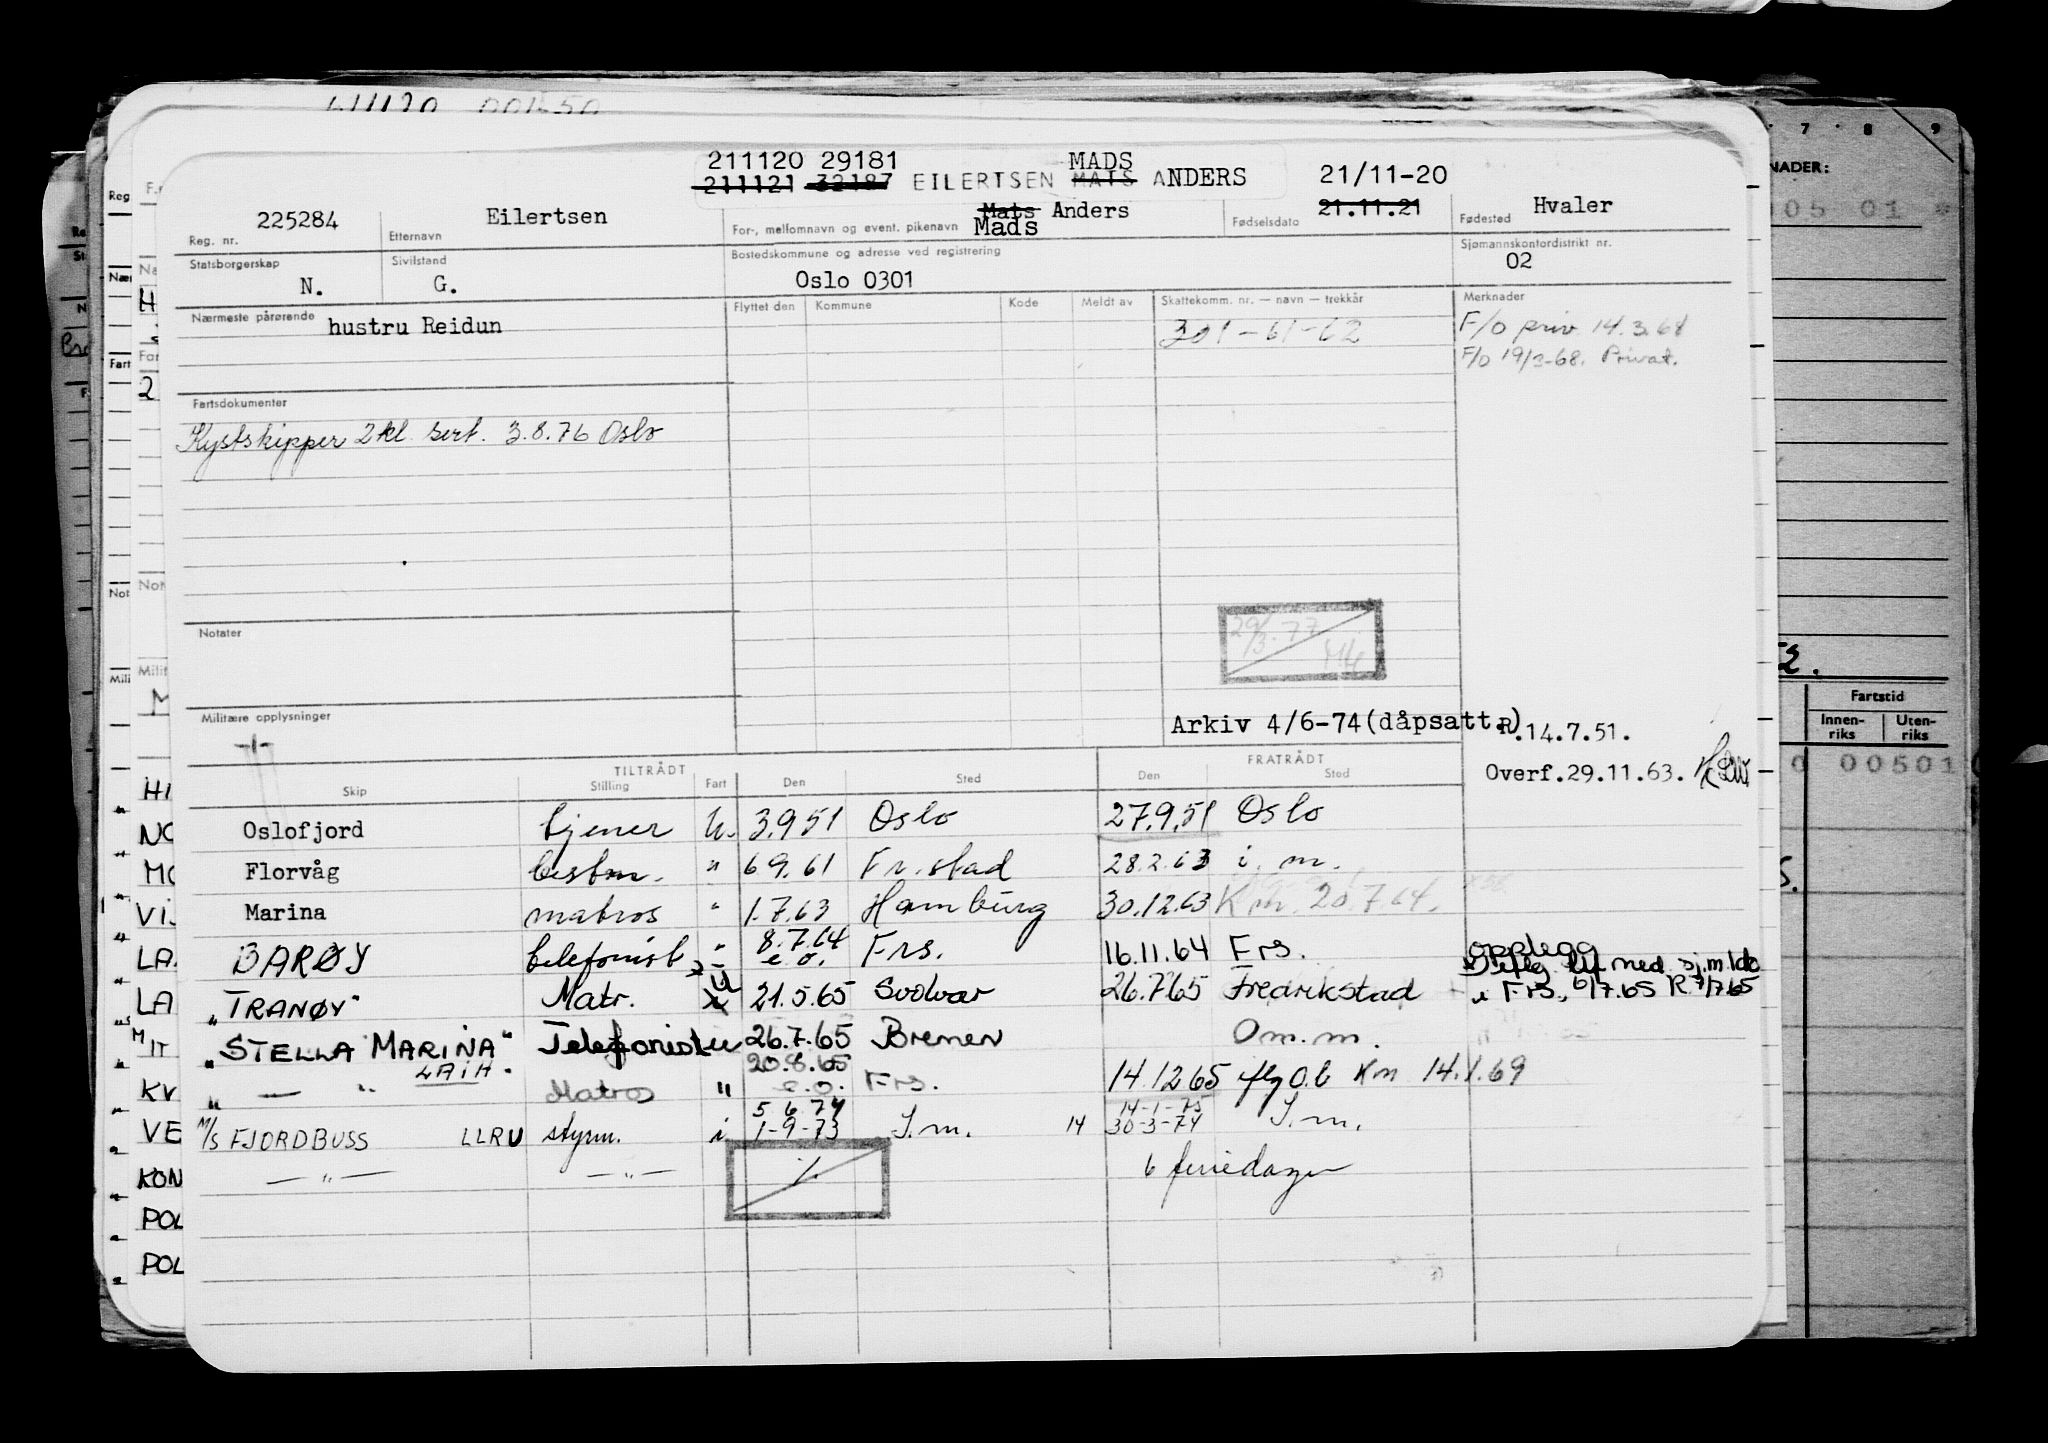 211120 29181 MADS
211121 32187 EILERTSEN MATS ANDERS 21/11-20
225284 Eilertsen Mats Anders 21.11.21 Hvaler
Reg. nr. Etternavn For-, mellomnavn og event. pikenavn Mads Fødselsdato Fødested
Statsborgerskap Sivilstand Bostedskommune og adresse ved registrering Sjømannskontordistrikt nr.
N. G. Oslo 0301 02
Nærmeste pårørende hustru Reidun Flyttet den Kommune Kode Meldt av Skattekomm. nr. — navn — trekkår Merknader
301-61-62 F/o priv 14.3.68
F/o 19/3-68. Privat.
Fartsdokumenter
Kystskipper 2kl sert. 3.8.76 Oslo
29/3-77
Notater
Militære opplysninger
Arkiv 4/6-74(dåpsatt.)
R.14.7.51.
Overf.29.11.63.
TILTRÅDT FRATRÅDT
Skip Stilling Fart Den Sted Den Sted
Oslofjord tjener U. 3.9.51 Oslo 27.9.51 Oslo
Florvåg bestm. " 6.9.61 Fr.stad 28.2.63 i. m.
Marina matros " 1.7.63 Hamburg 30.12.63 Km. 20.7.64.
BARØY telefonist " 8.7.64 e.o. Frs. 16.11.64 Frs. opplegg
"TRANØY" Matr. U 21.5.65 Svolvær 26.7.65 Fredrikstad
i Frs, 6/7.65 R.7/7.65
"STELLA MARINA" Telefonist u 26.7.65 Bremen Om.m.
" — " LAIH. Matros " 20.8.65 e.o. Frs. 14.12.65 iflg O.b Km 14.1.69
M/S FJORDBUSS LLRU styrm. i 5.6.74 14-1-75
1-9-73 I.m. 14 30-3-74 I.m.
— " — — " — ./. 6 feriedager
7 8 9
NADER:
Fartstid
Innen-riks Uten-riks
00501